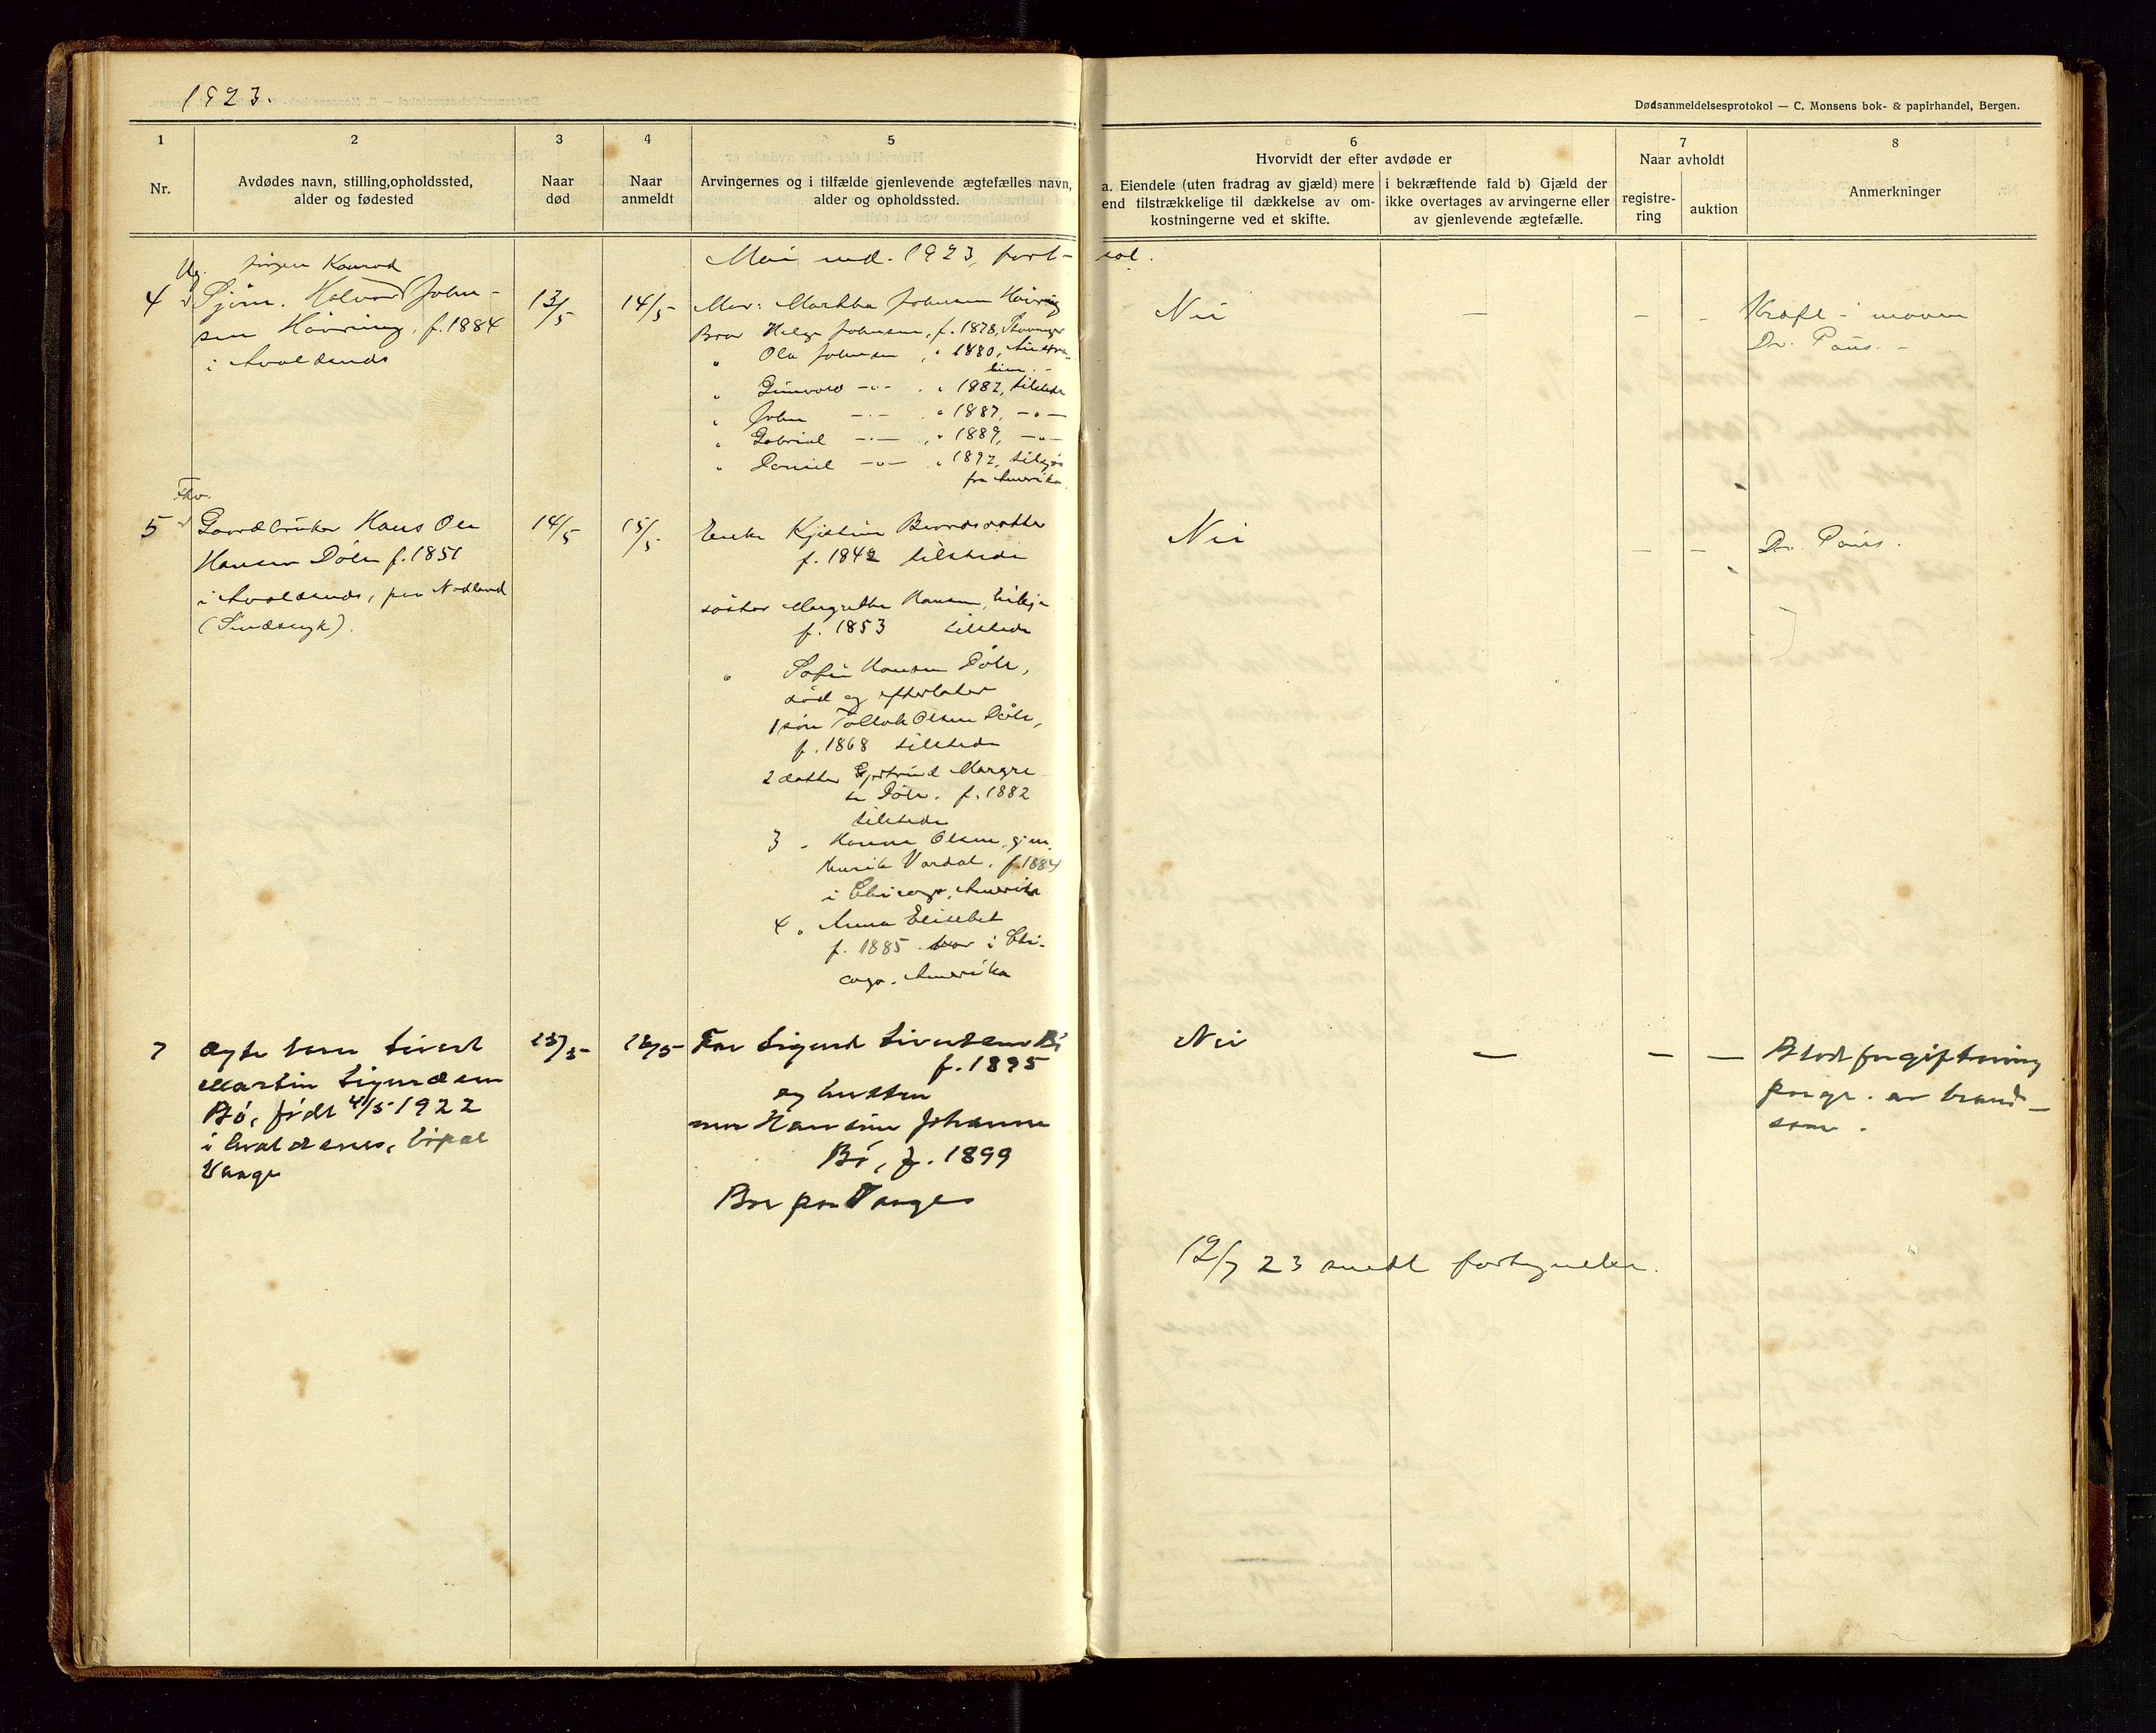 1923.
Dødsanmeldelsesprotokol — C. Monsens bok- & papirhandel, Bergen.
1
Nr.
2
Avdødes navn, stilling, opholdssted,
alder og fødested
3
Naar
død
4
Naar
anmeldt
5
Arvingernes og i tilfælde gjenlevende ægtefælles navn,
alder og opholdssted.
6
Hvorvidt der efter avdøde er
a. Eiendele (uten fradrag av gjæld) mere
end tilstrækkelige til dækkelse av om-
kostningerne ved et skifte.
i bekræftende fald b) Gjæld der
ikke overtages av arvingerne eller
av gjenlevende ægtefælle.
7
Naar avholdt
registre-
ring
auktion
8
Anmerkninger
Mai md. 1923, fort-
sat.
Ug. Konrad
4 Sjöm. Halvor John-
sen Hövring, f. 1884
i Avaldsnes
13/5
14/5
Mor: Martha Johnsen Hövring
Bror Helge Johnsen, f. 1878, Stavanger
" Ola Johnsen, " 1880, Austra-
lien. -
" Gunvald -"- " 1882, tilstede
" John -"- " 1887, -"-
" Gabriel -"- " 1889, -"-
" Daniel -"- " 1892, tilsjös
fra Amerika.
Nei
—
-
-
Kræft i maven
Dr. Paus. -
5 Gaardbruker Hans Ole
Hansen Döle f. 1851
i Avaldsnes, paa Nodland
(Sindssyk).
14/5
15/5
Enke Kjistine
f. 1842 tilstede
söster Margrethe Hansen,
f. 1853 tilstede
" Sofie Hansen Döle,
död og efterlater
1 sön Tollak Olsen Döle,
f. 1868 tilstede
2 datter Gjertrud Margre-
te Döle. f. 1882
tilstede
3 " Hanna Olsen, gjm.
Henrik Vardal, f. 1884
i Chicago, Amerika
4 " Anna Elisebet
f. 1885 bor i Chi-
cago. Amerika
Nei
—
—
Dr. Paus.
7 Ægte barn Sivert
Martin Sigurdsen
Bö, födt 4/5 1922
i Avaldsnes, bopæl
Vaage
15/5
16/5
Far Sigurd Sivertsen Bö
f. 1895
og hustru
mor Hansine Johanne
Bö, f. 1899
Bor paa Vaage
Nei
—
—
—
Blodforgiftning
paagr. av brand-
saar.
19/7 23 sendt fortegnelse.